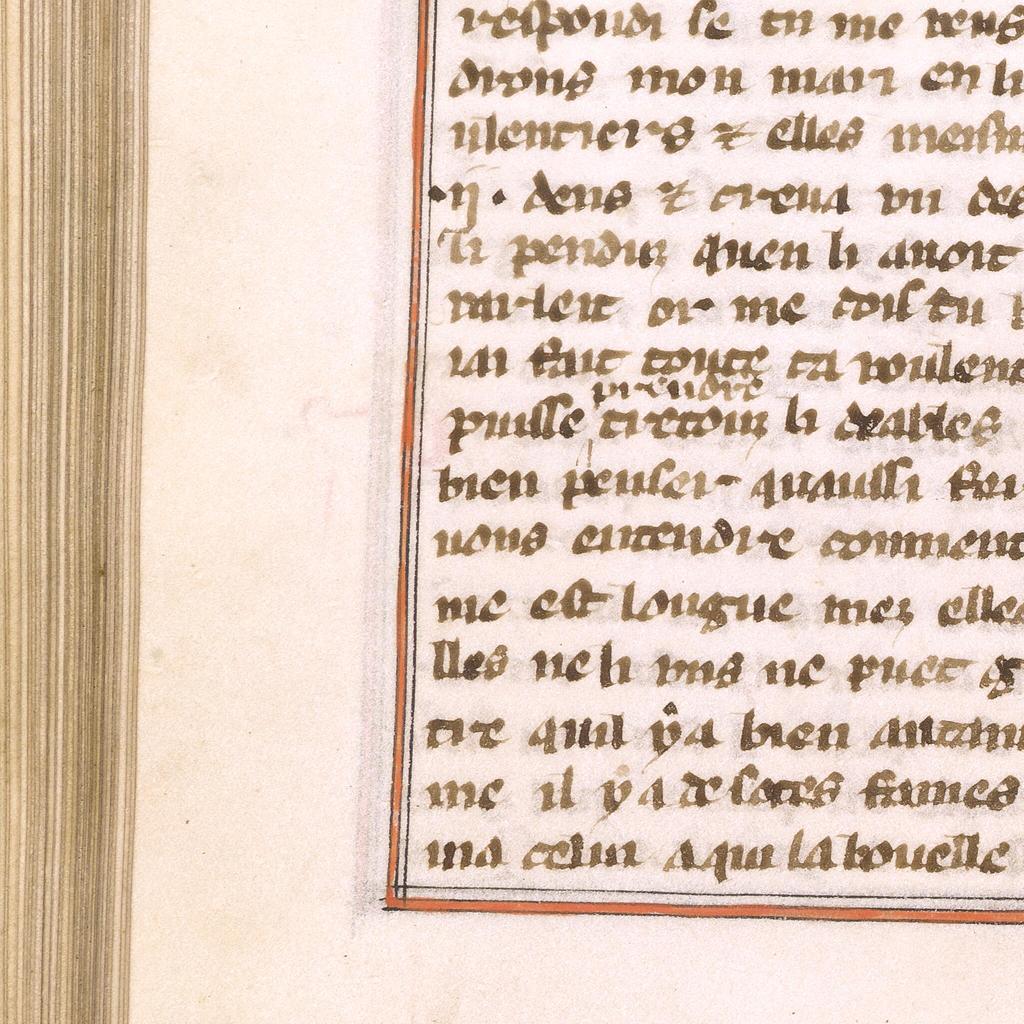 respondi se tu me veus
dirons mon mari en li
uilentiers ⁊ elles meism
.ij. dens ⁊ creua vn des
li pendi quen li auoit
parleir or me doiſ tu
iai fait toute ta voulent
prendre
puisse tretouz li deables
bien penser quaussi fai
uous entendre comment
me est longue mez elles
lles ne li vns ne puet
tre quil y a bien autant
me il y a de sotes fames
ma celui a qui la bouelle